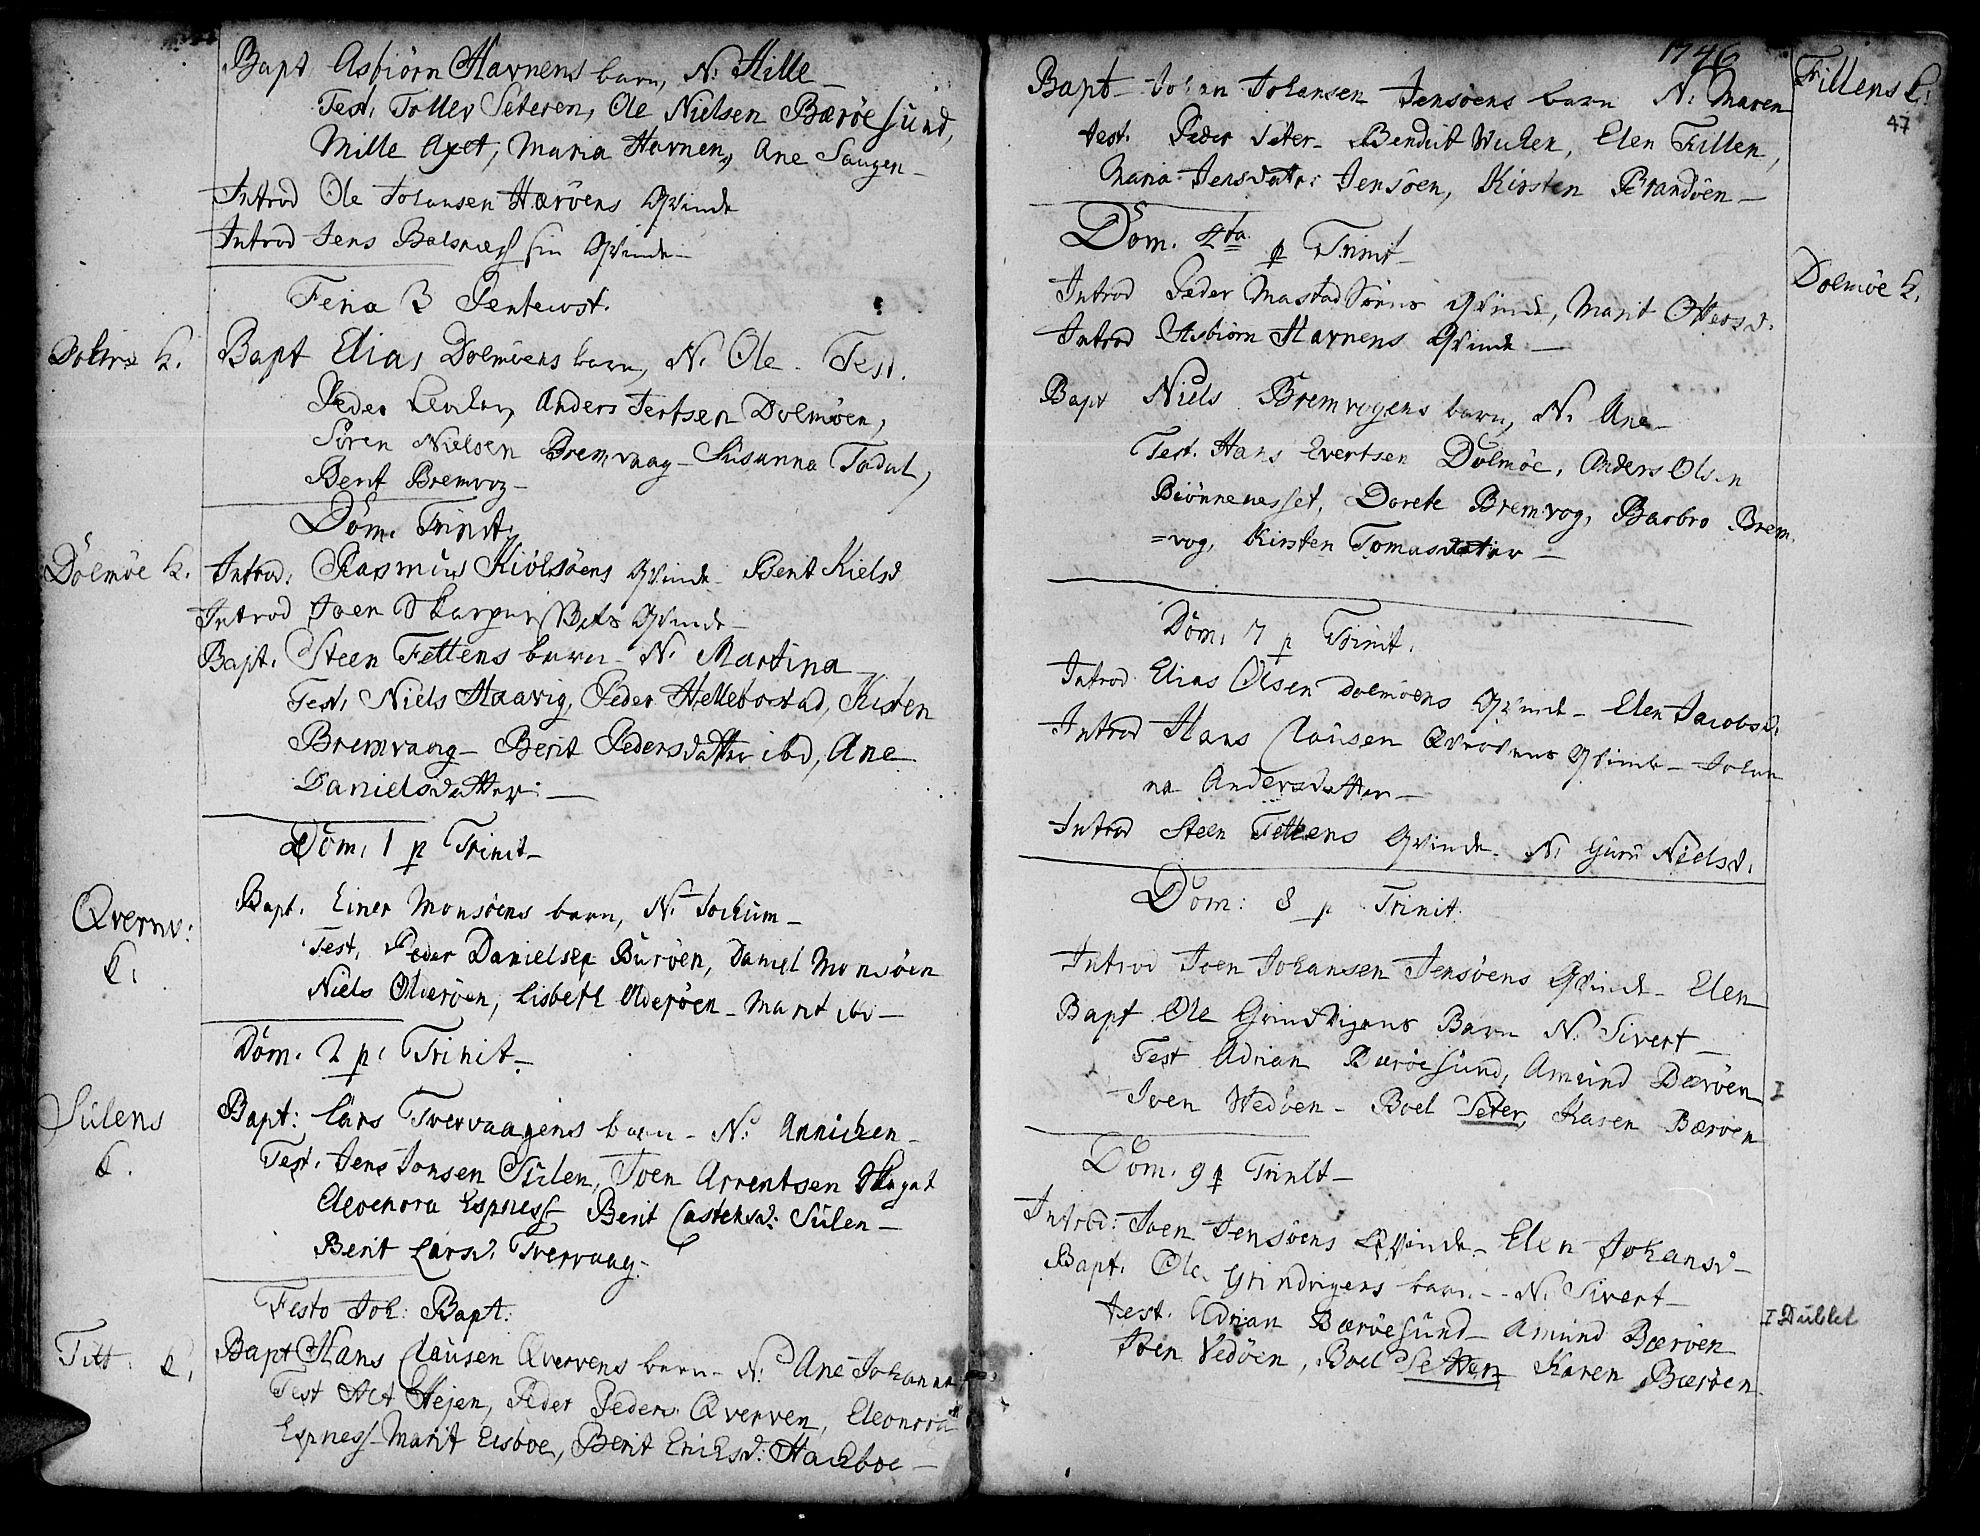 Bapt Asbiörn Havnens barn, N. Hille
Test. Toller Seteren, Ole Nielsen Bæröesund,
Mille Axet, Maria Havnen, Ane Saugen
Introd Ole Johansen Hæröens Qvinde
Introd Jens Balsnæs sin Qvinde
Feria 3 Pentecost.
Dolmø K. Bapt Elias Dolmöens barn, N. Ole. Test.
Peder Anders Jertsen Dolmöen,
Sören Nielsen Bremvaag - Susanna
Berit Bremvog
Dom. Trinit.
Dolmöe K. Introd. Rasmus Kiölsöens Qvinde - Berit Kielsd
Introd Joen Qvinde
Bapt. Steen Fettens barn - N. Martina
Test. Niels Haavig, Peder Hellebostad, Kisten
Bremvaag - Berit Pedersdatter ibd, Ane
Danielsdatter
Dom. 1 p Trinit
Qvernv: K. Bapt. Einer Monsöens barn, N. Jochum
Test. Peder Danielsen Buröen, Daniel Monsöen
Niels Olderöen, Lisbeth Olderöen - Marit ibd
Dom. 2 p. Trinit
Sulens K. Bapt: Lars Tvervaagens barn - N. Annichen
Test. Jens Jonsen Sulen, Joen Arrentsen
Eleonora Espness Berit Castensd: Sulen
Berit Larsd. Tvervaag
Festo Joh: Bapt:
Titt. K. Bapt Hans Clausen Qvervens barn - N. Ane Johanna
Test Hejen, Peder Peders. Qverven, Eleonora
Espness - Marit Eisboe, Berit Ericksd: Hackboe
1746
Fillens K.
47
Bapt - Johan Johansen Jensöens barn N. Maren
test. Peder Seter - Bendict Wuken, Elen Fillen,
Maria Jensdatr: Jensöen, Kirsten Brandöen
Dom. 4ta p Trinit
Dolmöe K.
Introd Peder Mastad Qvinde, Marit Ottersd.
Introd Asbiörn Havnens Qvinde
Bapt Niels Bremvogens barn, N. Ane
Test. Hans Evertsen Dolmöe, Anders Olsen
Biönnenesset, Dorete Bremvog, Barbro Brem
=vog, Kirsten Tomasdatter
Dom. 7 p Trinit.
Introd Elias Olsen Dolmöens Qvinde - Elen Jacobsd.
Introd Hans Clausen Qvervens Qvinde - Johan
na Andersdatter
Introd Steen Fettens Qvinde - N. Guru Nielsd.
Dom: 8 p Trinit.
Introd Joen Johansen Jensöens Qvinde - Elen
Bapt Ole Grindvigens Barn N. Sivert
Test Adrian Bæröesund, Amund Bæröen I
Joen Wedöen - Boel Seter, Karen Bæröen
Dom. 9 p Trinit
Introd: Joen Jensöens Qvinde - Elen Johansd
Bapt. Ole Grindvigens barn - N. Sivert
test. Adrian Bæröesund - Amund Bæröen I Dublet
Joen Vedöen, Boel Setter Karen Bæröen